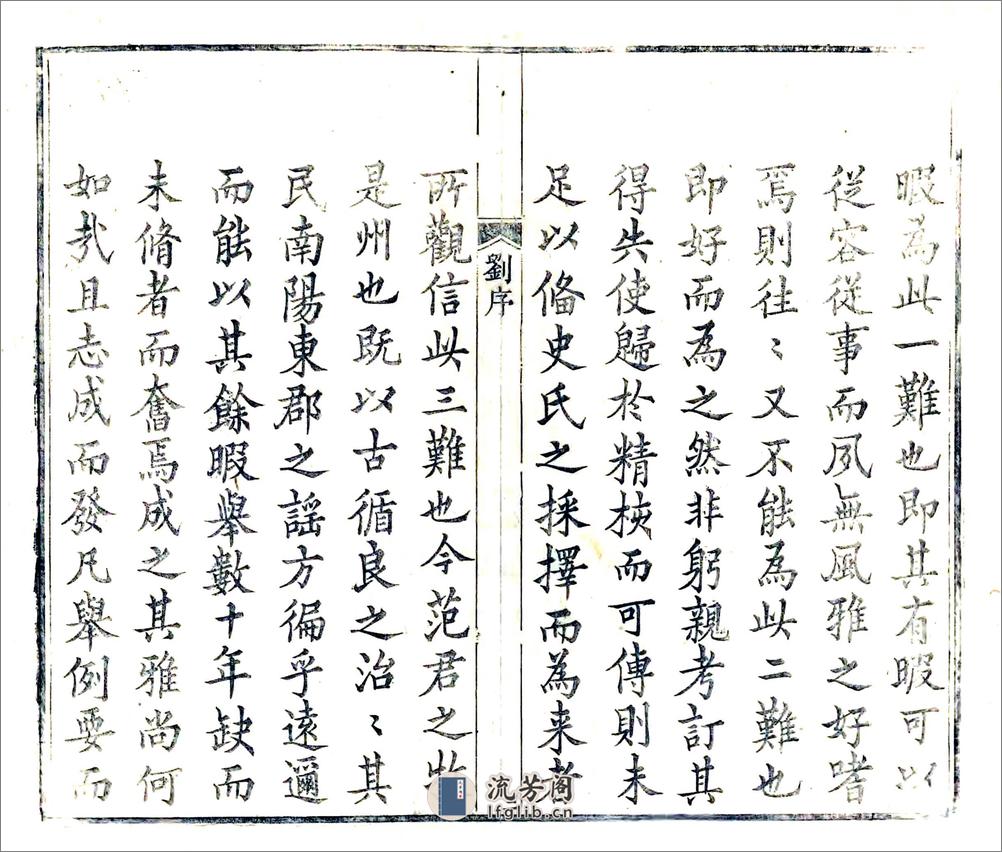 暇為此一難也即其有暇可以
從容從事而夙無風雅之好嗜
焉則往〻又不能為此二難也
即好而為之然非躬親考訂其
得失使歸於精核而可傳則未
足以俻史氏之採擇而為来者
劉序
所觀信此三難也今范君之牧
是州也既以古循良之治〻其
民南陽東郡之謡方徧乎遠邇
而能以其餘暇舉數十年缺而
未脩者而奮焉成之其雅尚何
如㢤且志成而發凡舉例要而
流芳阁
lfglib.cn